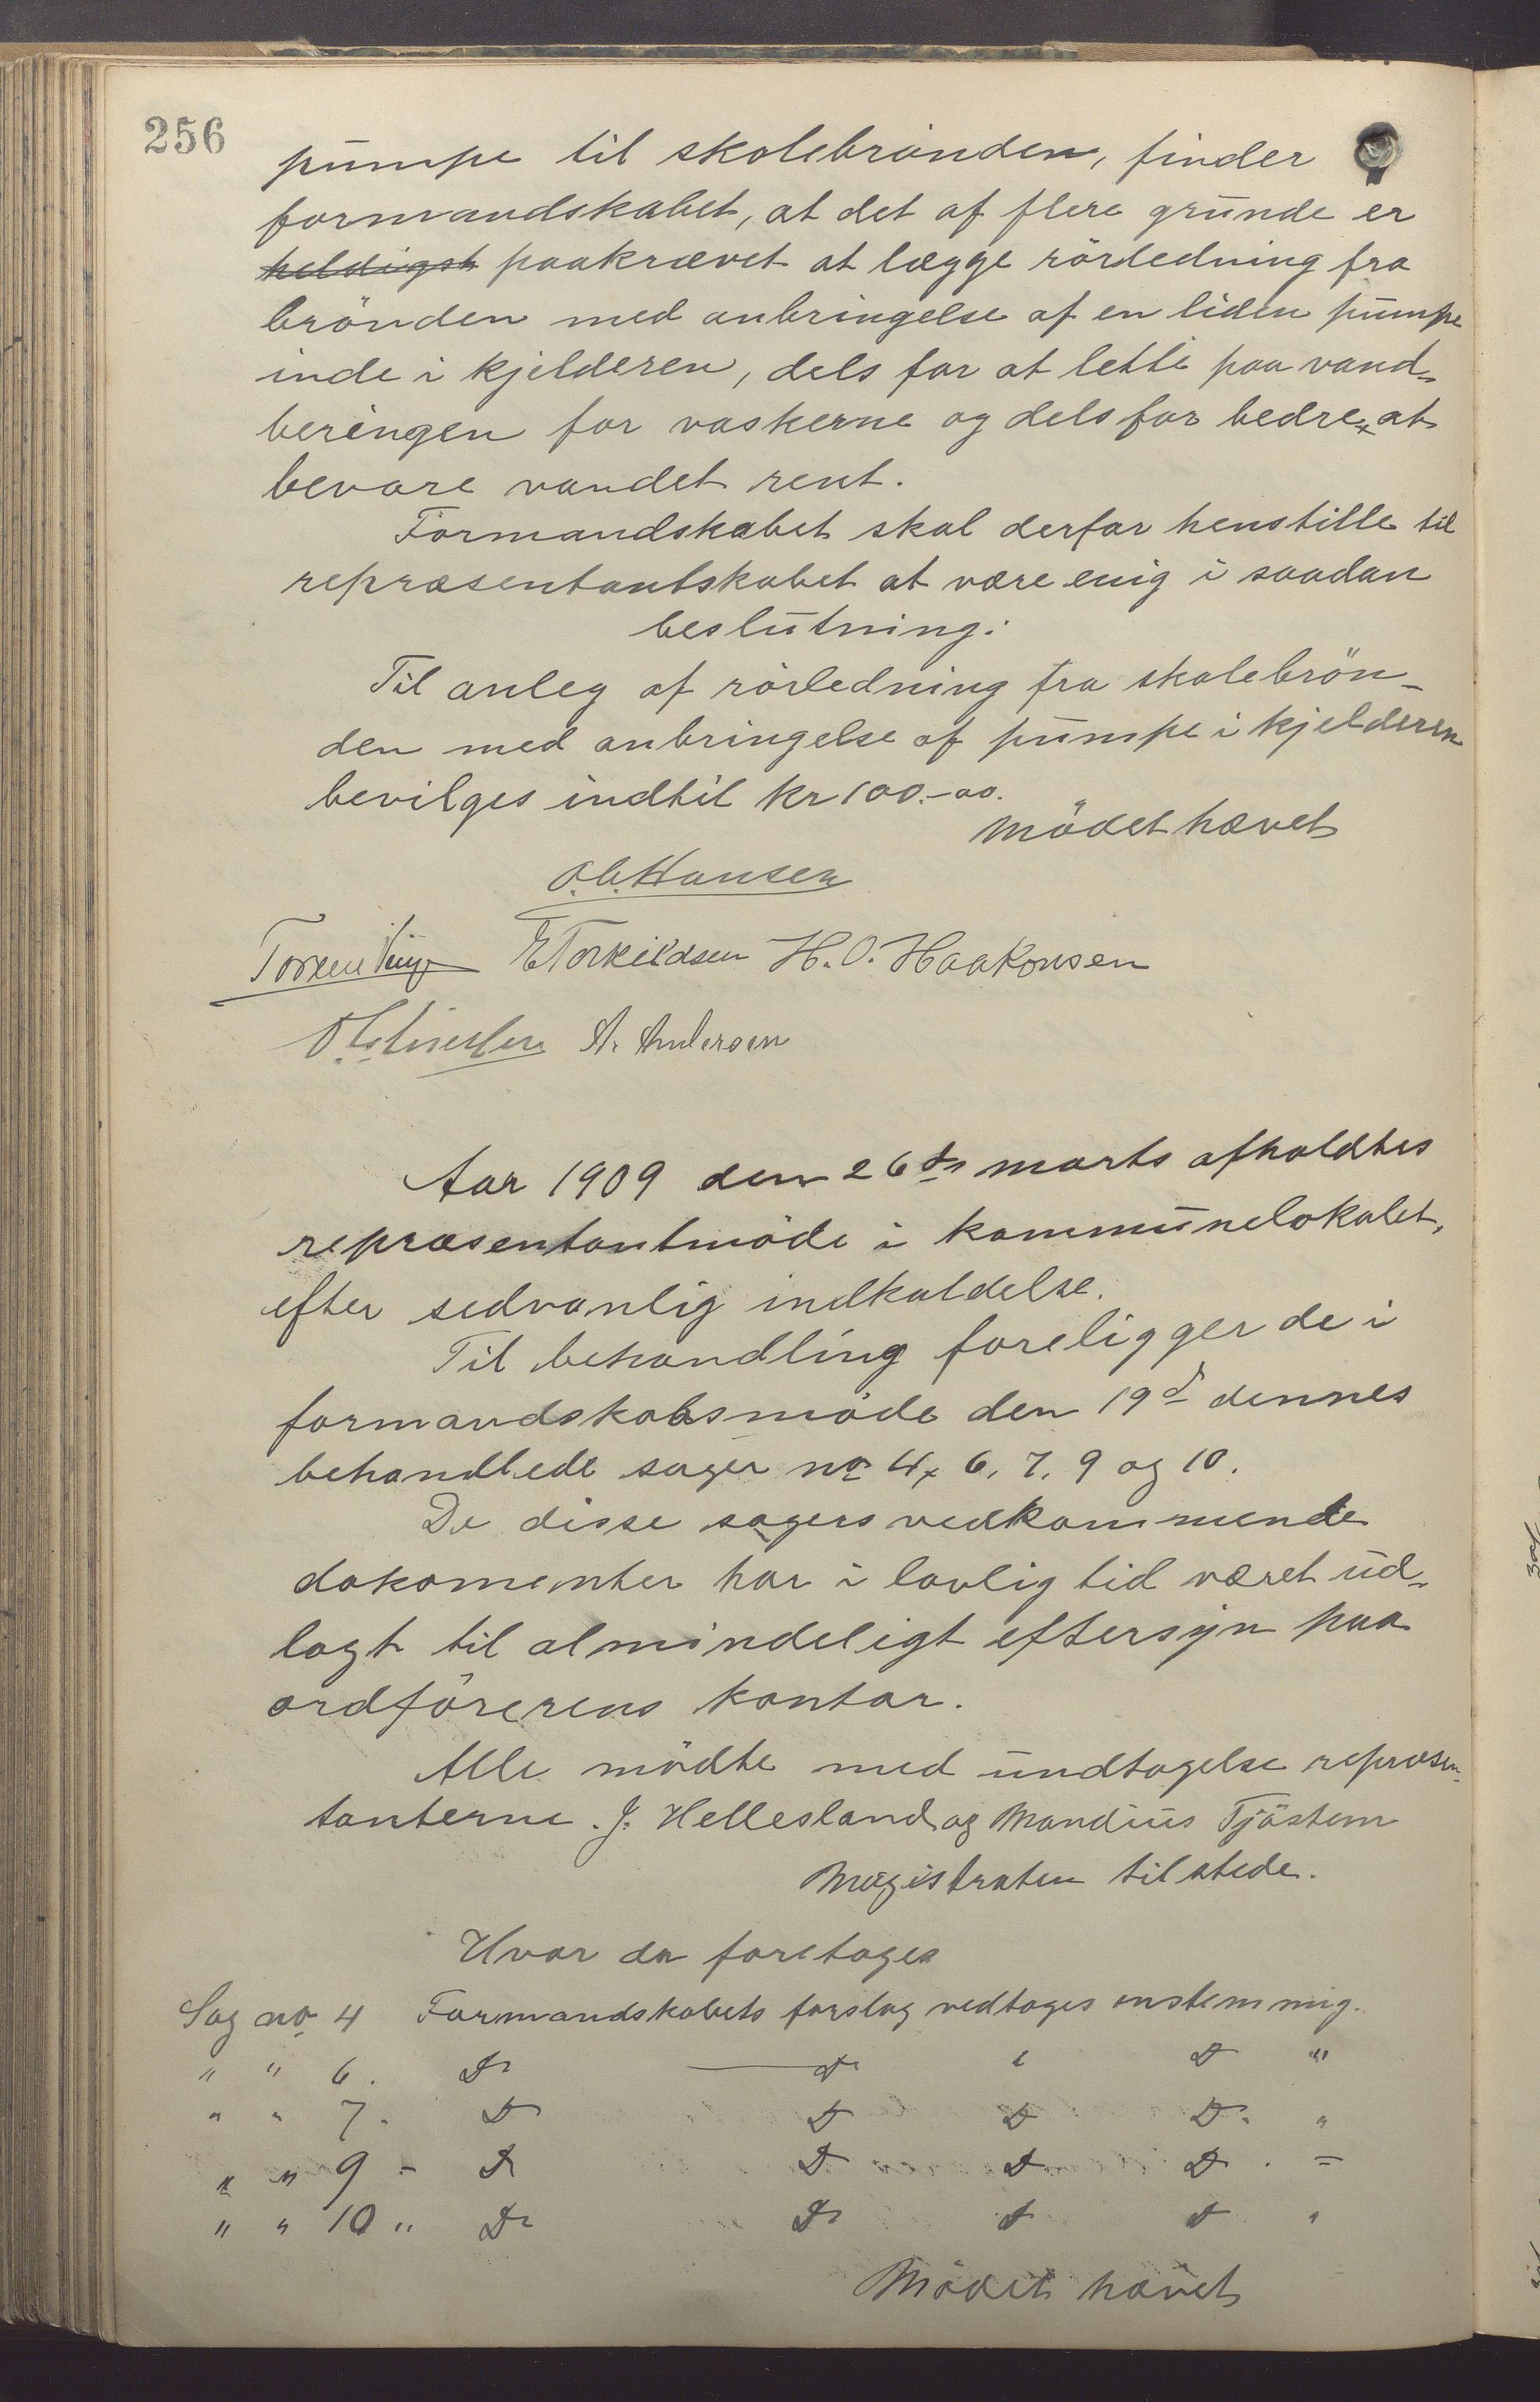 256
pumpe til skolebrönden, finder
formandskabet, at det af flere grunde er
heldigst paakrævet at lægge rörledning fra
brönden med anbringelse af en liden pumpe
inde i kjelderen, dels for at lette paa vand-
beringen for vaskerne og dels for bedre at
bevare vandet rent.
Formandskabet skal derfor henstille til
repræsentantskabet at være enig i saadan
beslutning:
Til anleg af rörledning fra skolebrön-
den med anbringelse af pumpe i kjelderen
bevilges indtil kr 100.-00.
Mödet hævet
O.C. Hansen
E Torkildsen H. O. Haakonsen
A. Andersen
Aar 1909 den 26de marts afholdtes
repræsentantmöde i kommunelokalet,
efter sedvanlig indkaldelse.
Til behandling foreligger de i
formandskabsmöde den 19d dennes
behandlede sager no 4, 6, 7, 9 og 10.
De disse sagers vedkommende
dokomenter har i lovlig tid været ud-
lagt til almindeligt eftersyn paa
ordförerens kontor.
Alle mödte med undtagelse repræsen-
tanterne J. Hellesland og Mandius Tjöstem
Magistraten tilstede.
Hvor da foretages
Sag no 4 Formandskabets forslag vedtages enstemmig.
" " 6. Do Do " Do "
" " 7. Do Do Do Do. "
" " 9 - Do Do Do Do. "
" " 10 " Do Do Do Do "
Mödet hævet